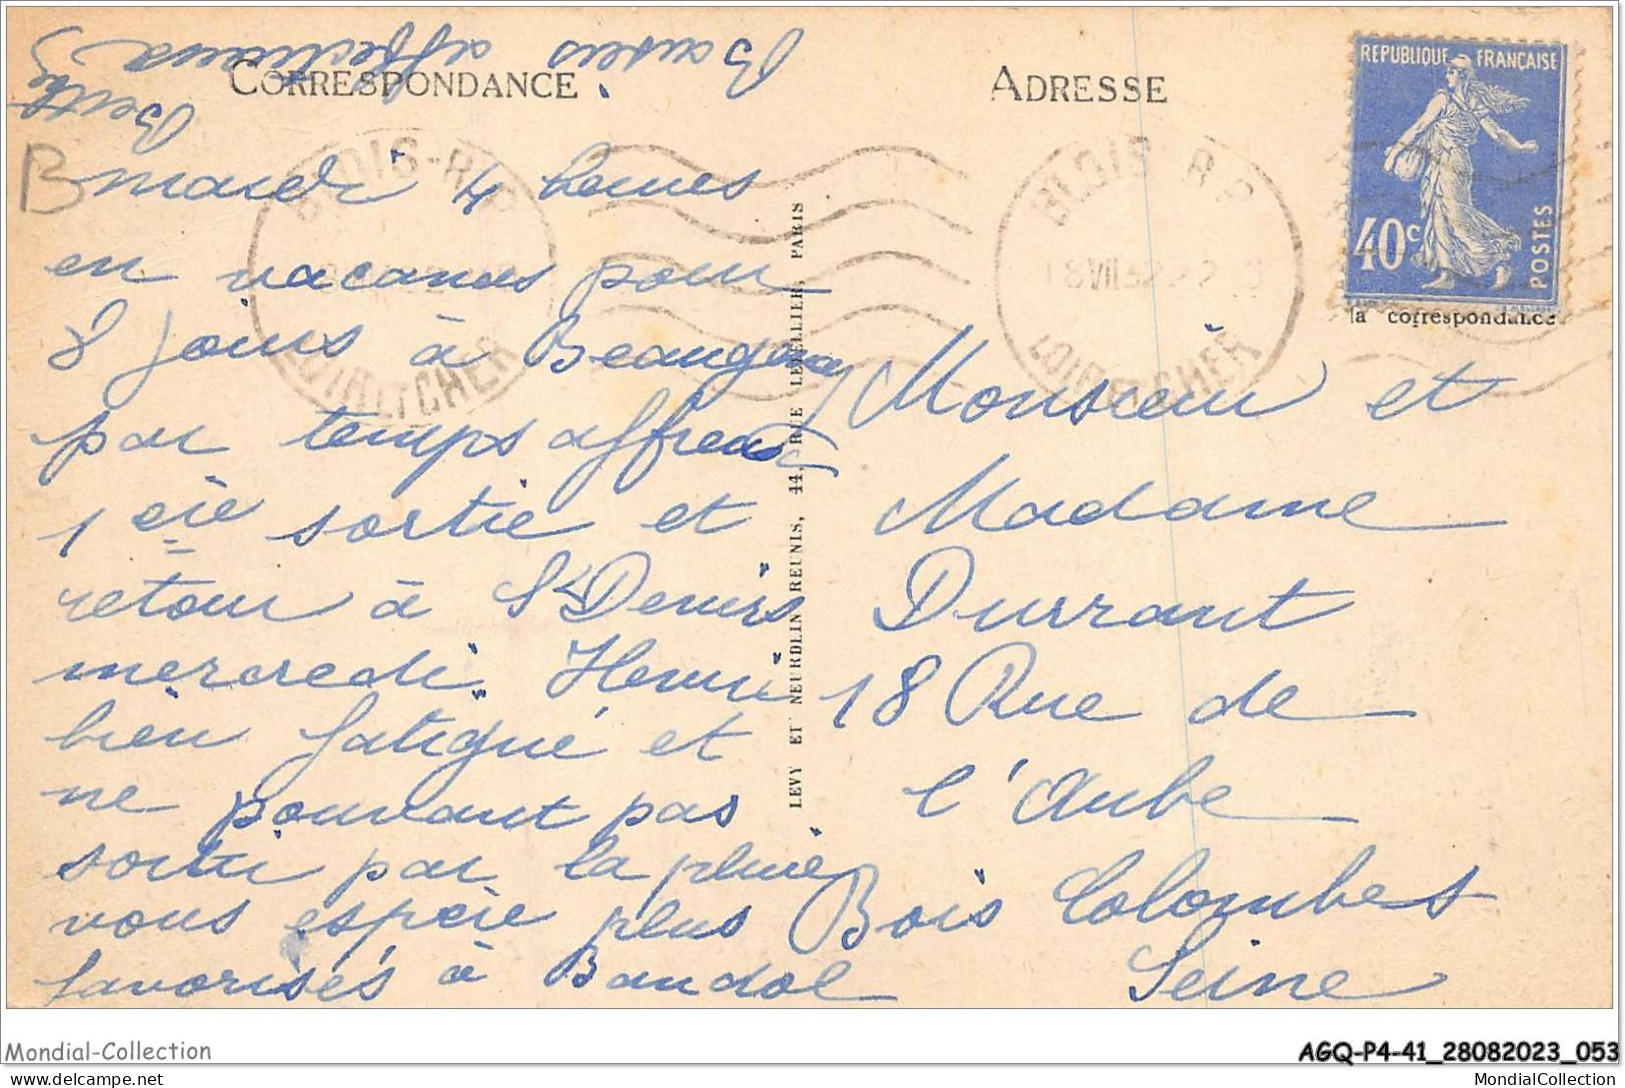 CORRESPONDANCE
ADRESSE
REPUBLIQUE FRANÇAISE
40c
POSTES
la correspondance
BLOIS-R.P
LOIR ET CHER
BLOIS R.P
18 VII 32
LOIR ET CHER
B
mardi 4 heures
en vacances pour
8 jours à Beaugency
par temps affreux
1 ère sortie et
retour à St Denis
mercredi. Henri
bien fatigué et
ne pouvant pas
sortir par la pluie
vous espère plus
favorisés à Bandol
Baisers affectueux
Berthe
LEVY ET NEURDLIN REUNIS, 44, RUE LETELLIER, PARIS
Monsieur et
Madame
Durrant
18 Rue de
l'Aube
Bois Colombes
Seine
Mondial-Collection
AGQ-P4-41_28082023_053
delcampe.net
MondialCollection